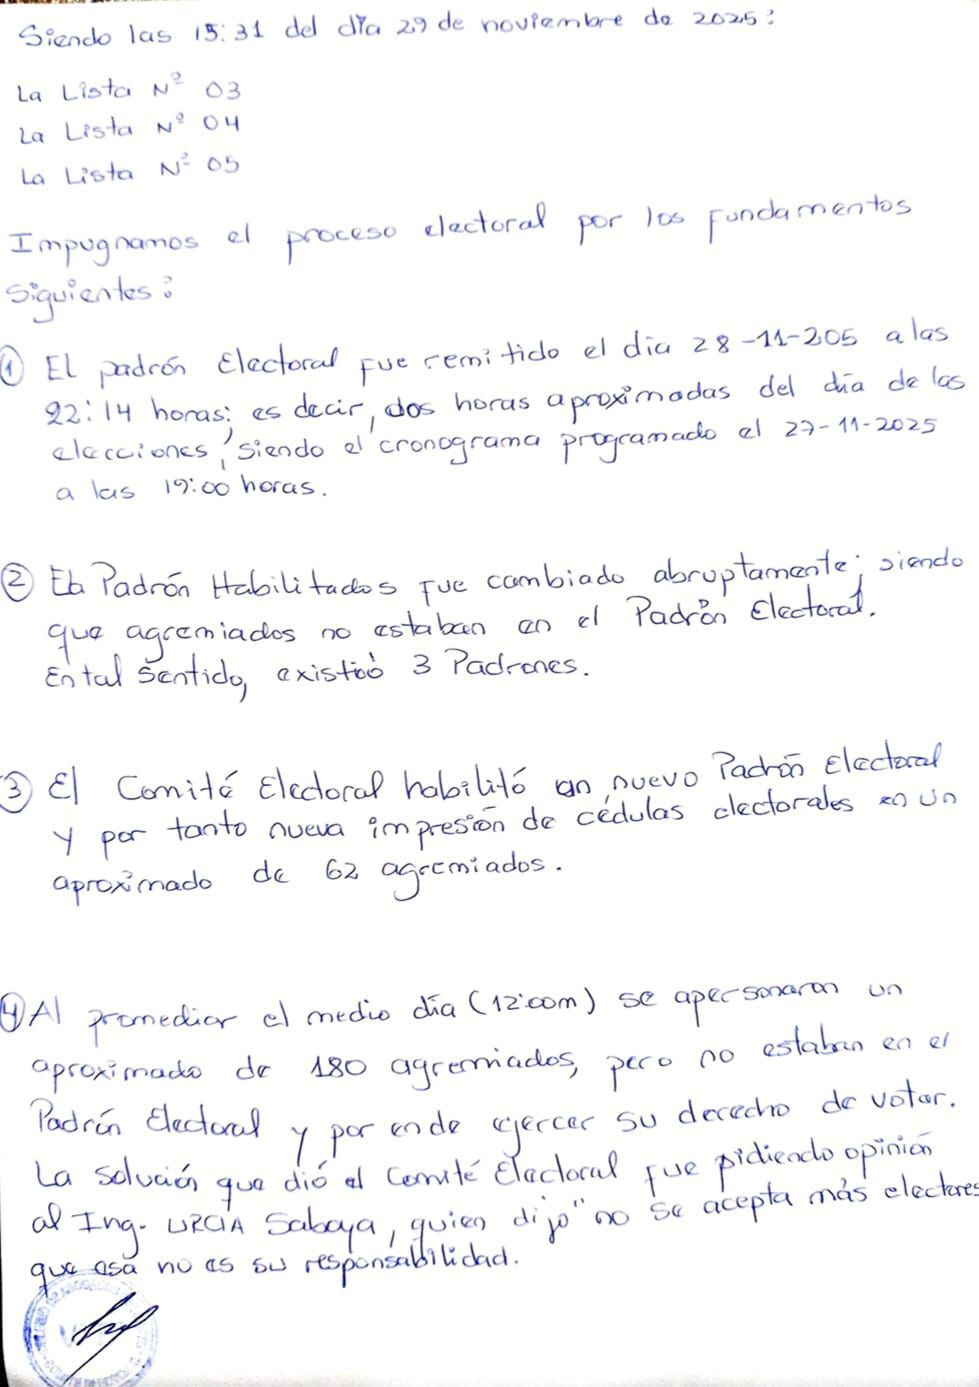 Siendo las 15:31 del día 29 de noviembre de 2025:
La Lista Nº 03
La Lista Nº 04
La Lista Nº 05
Impugnamos el proceso electoral por los fundamentos
Siguientes:
① El padrón Electoral fue remitido el dia 28-11-205 a las
22:14 horas; es decir, dos horas aproximadas del día de las
elecciones, siendo el cronograma programado el 27-11-2025
a las 19:00 horas.
② El Padrón Habilitados fue cambiado abruptamente; siendo
que agremiados no estaban en el Padrón Electoral.
En tal Sentido, existió 3 Padrones.
③ El Comité Electoral habilitó un nuevo Padrón Electoral
y por tanto nueva impresión de cédulas electorales en un
aproximado de 62 agremiados.
④ Al promediar el medio día (12:00m) se apersonaron un
aproximado de 180 agremiados, pero no estaban en el
Padrón Electoral y por ende ejercer su derecho de votar.
La solución que dió el Comité Electoral fue pidiendo opinión
al Ing. URCIA Sabaya, quien dijo "no se acepta más electores
que esa no es su responsabilidad.